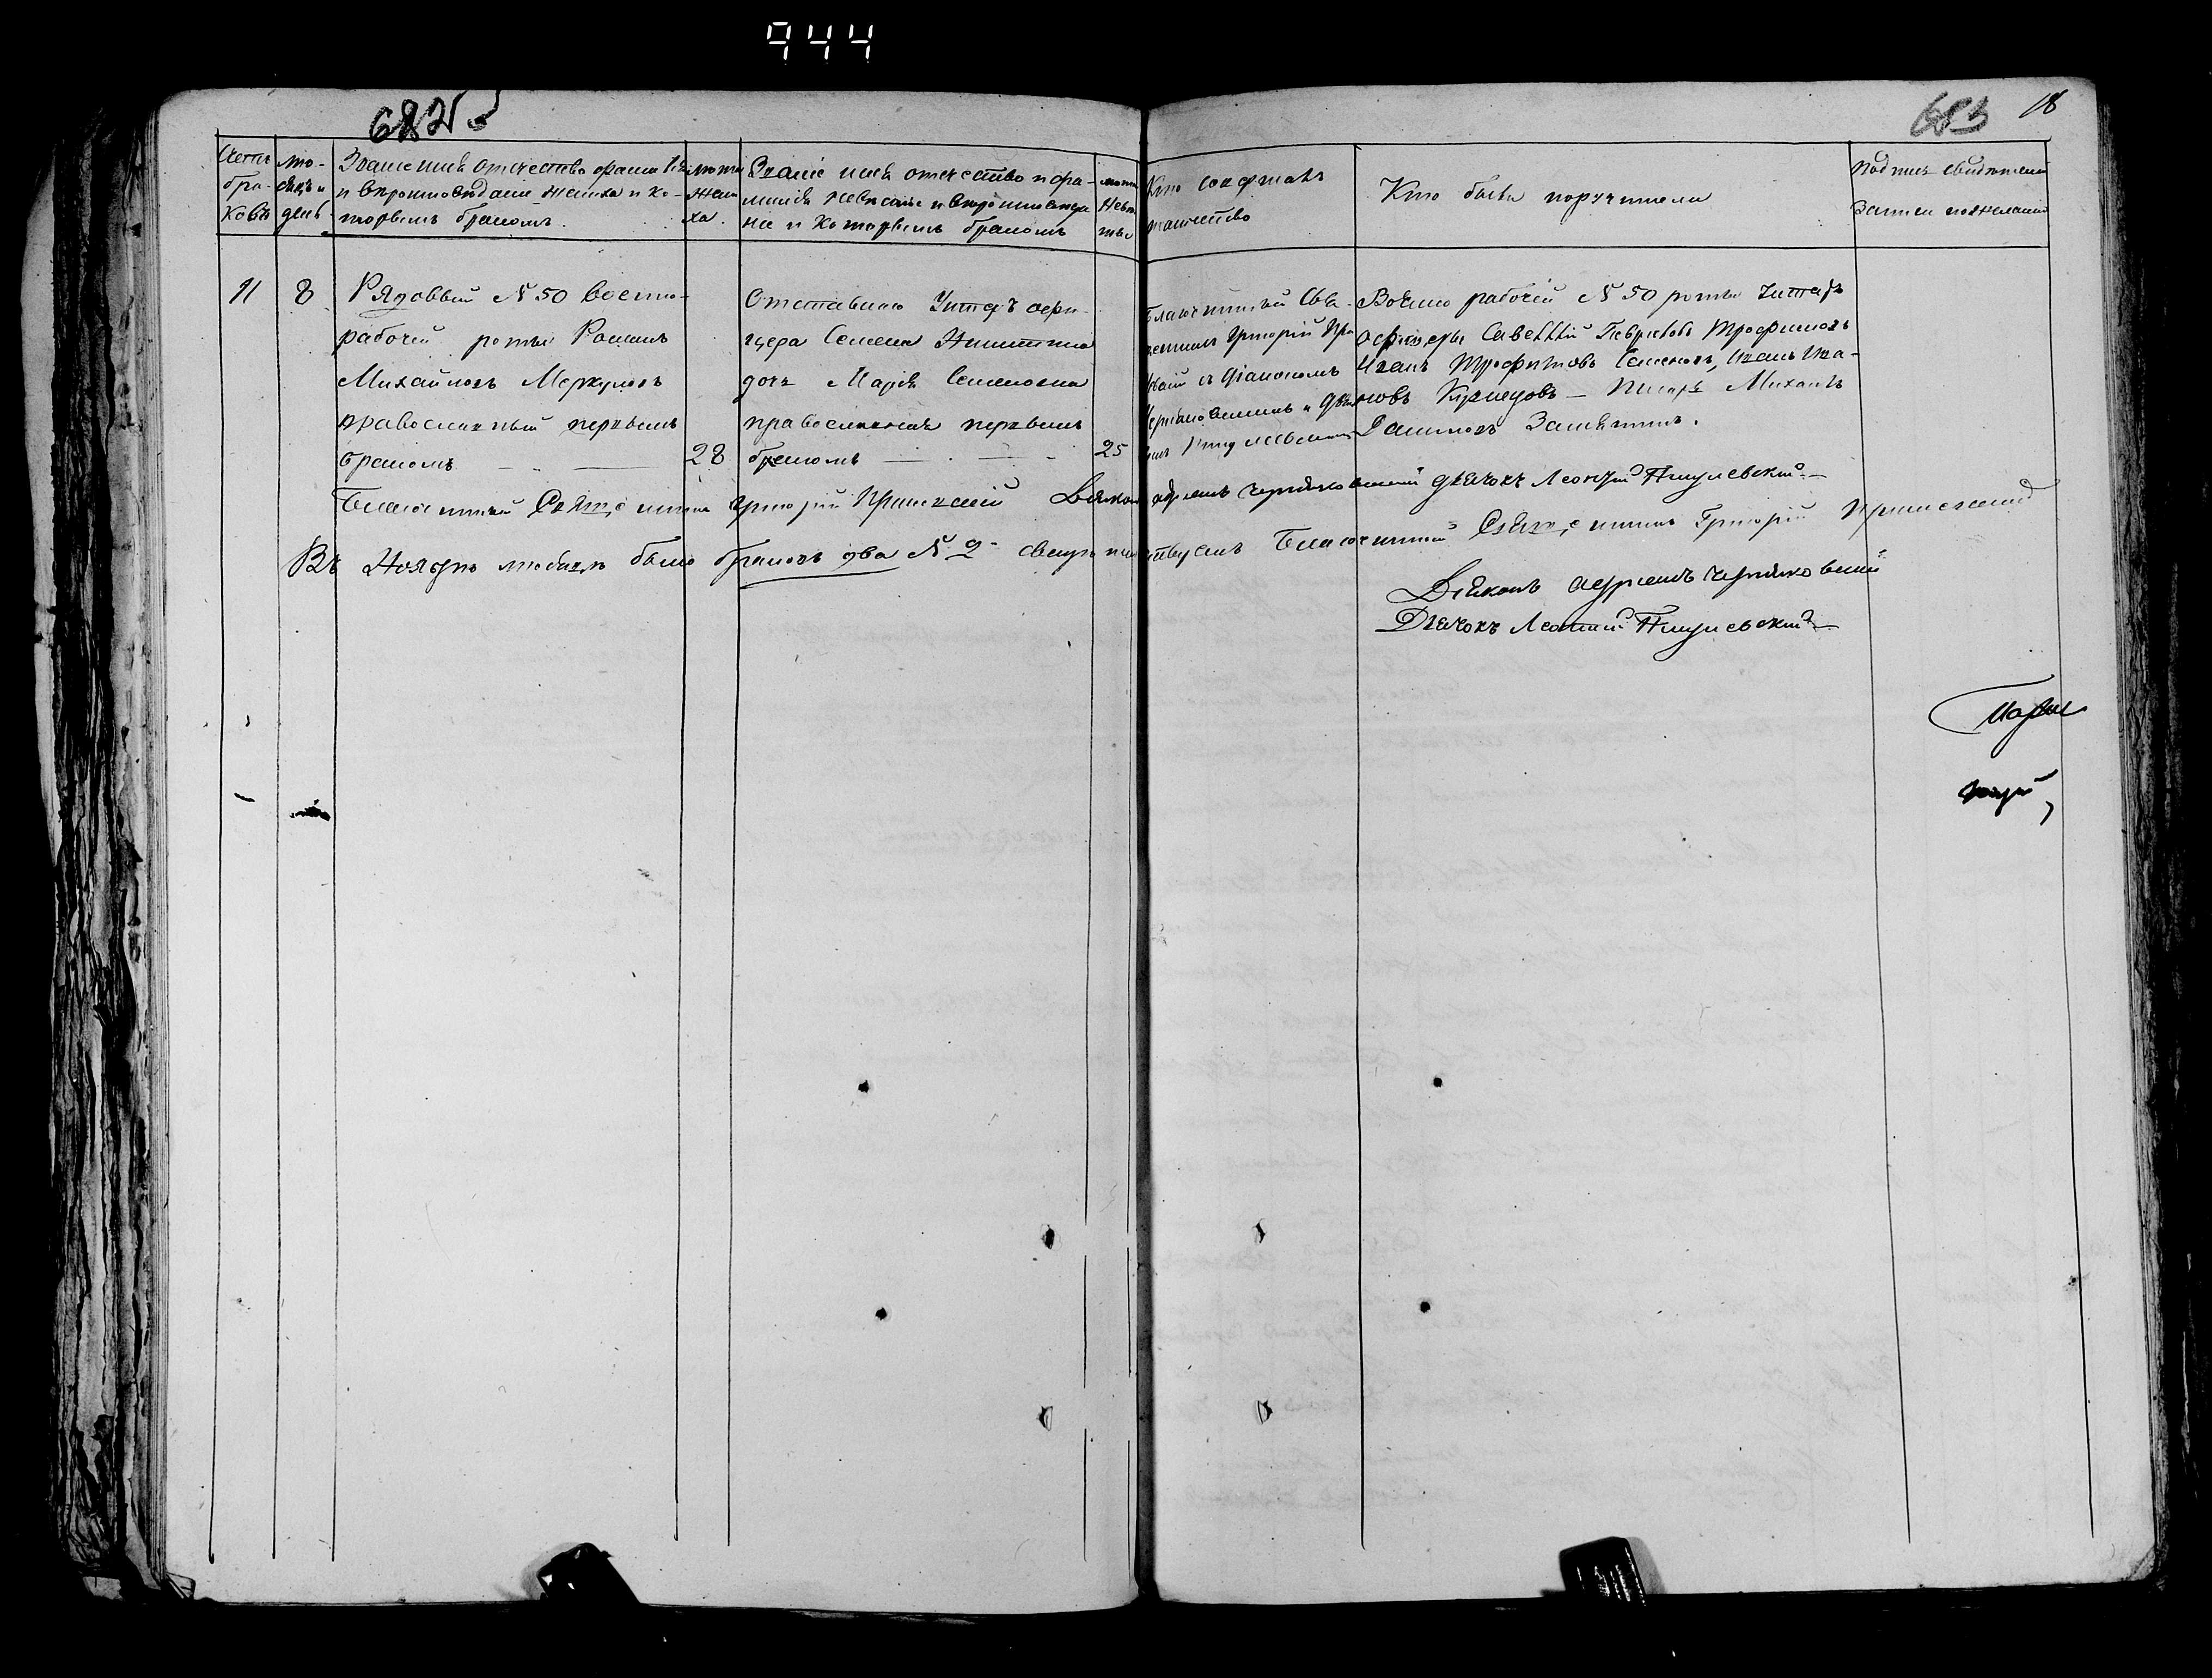 944
682
683 18
Счетъ бра-ковъ
мѣ-сяцъ и день
Званіе имя отечество фамилія и вѣроисповѣданіе жениха и ко-торымъ бракомъ.
лѣта жени ха.
Званіе имя отечество и фа-милія невѣсты и вѣроисповѣда ніе и которымъ бракомъ
лѣта невѣ сты
Кто совершалъ таинство
Кто были поручители
Подпись свидѣтелей записи по желанію
11 8
Рядовый N 50 Военно-
рабочей роты Романъ
Михайловъ Меркуловъ
православный первымъ
бракомъ — 28
Отставнаго Унтеръ офи-
цера Семена Никитина
дочь Марія Семеновна
православная первымъ
бракомъ — 25
Благочинный Свя-
щенникъ Григорій
съ Діакономъ
Военно рабочей N 50 роты Унтеръ
офицеры Савелій Гавриловъ Трофимовъ
Иванъ Трофимовъ Семеновъ, Иванъ Ива-
новъ Кузнецовъ — Писарь Михаилъ
Даниловъ Замятинъ.
Благочинный Священникъ Григорій Діаконъ Черняховскій Дьячокъ Леонтій
Въ Ноябрѣ мѣсяцѣ было браковъ два N 2 свидѣтельствуемъ Благочинный Священникъ Григорій
Діаконъ Черняховскій
Дьячокъ Леонтій